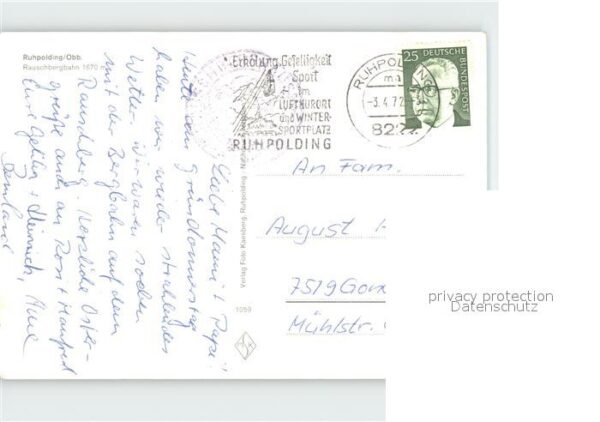 Ruhpolding/Obb.
Rauschbergbahn 1670 m
Erholung, Geselligkeit
Sport
im
LUFTKURORT
und WINTER-
SPORTPLATZ
RUHPOLDING
RUHPOLDING
-3.4.72
822
25
DEUTSCHE
BUNDESPOST
Liebe Mami + Papi!
Heute am Gründonnerstag
haben wir wieder strahlendes
Wetter. Wir waren soeben
mit der Bergbahn auf dem
Rauschberg. Herzliche Oster-
grüße auch an Rosi + Manfred
Eure + Heinrich,
Verlag Foto Ruhpolding
1959
An Fam.
August H
7519
Mühlstr.
privacy protection
Datenschutz